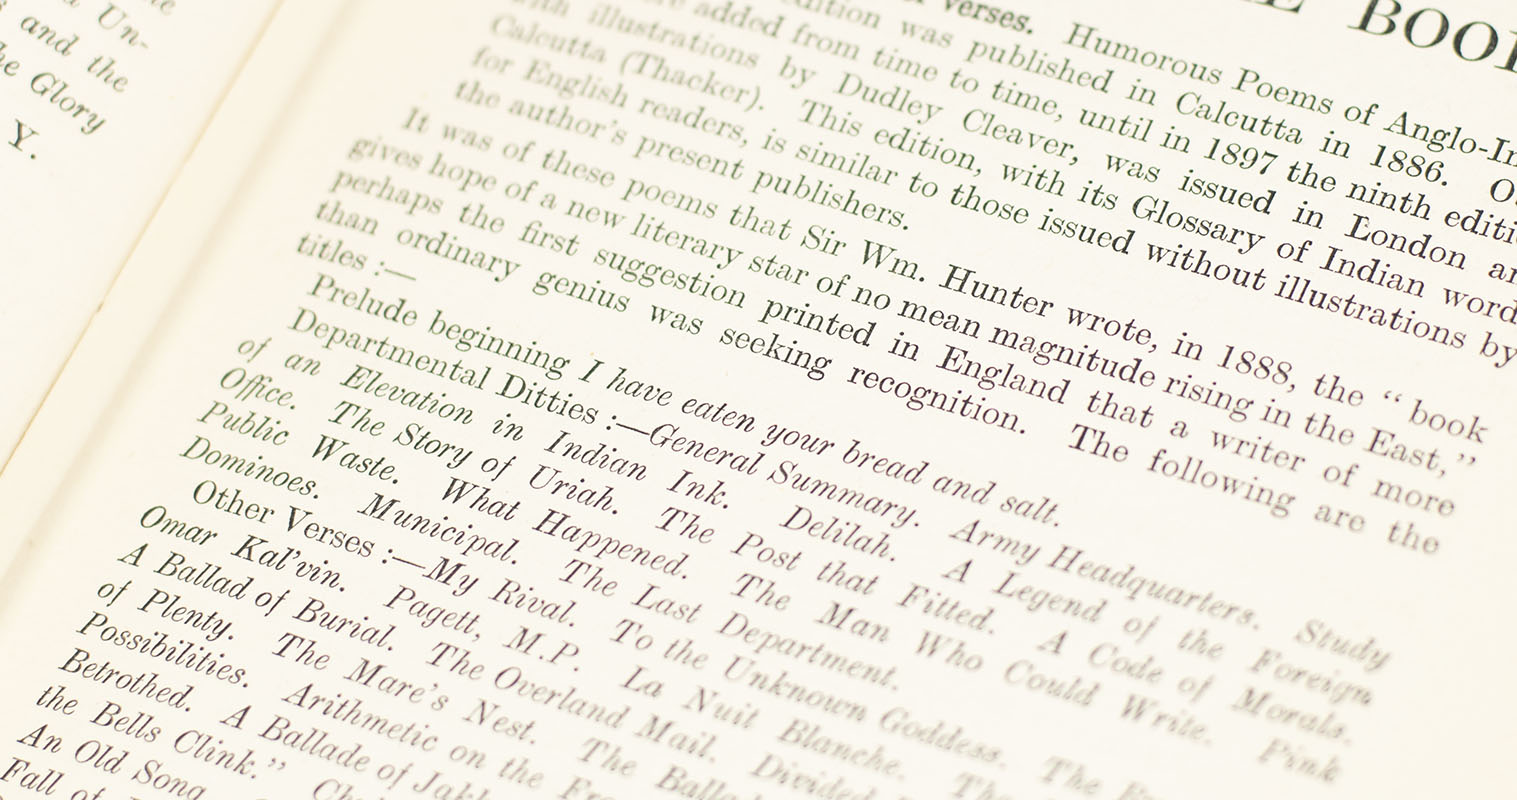 Un-
and the
Glory
Y.
BOO
verses. Humorous Poems of Anglo-In
was published in Calcutta in 1886. O
added from time to time, until in 1897 the ninth editi
with illustrations by Dudley Cleaver, was issued in London an
Calcutta (Thacker). This edition, with its Glossary of Indian word
for English readers, is similar to those issued without illustrations by
the author's present publishers.
It was of these poems that Sir Wm. Hunter wrote, in 1888, the “ book
gives hope of a new literary star of no mean magnitude rising in the East,”
perhaps the first suggestion printed in England that a writer of more
than ordinary genius was seeking recognition. The following are the
titles :—
Prelude beginning I have eaten your bread and salt.
Departmental Ditties :—General Summary. Army Headquarters. Study
of an Elevation in Indian Ink. Delilah. A Legend of the Foreign
Office. The Story of Uriah. The Post that Fitted. A Code of Morals.
Public Waste. What Happened. The Man Who Could Write. Pink
Dominoes. Municipal. The Last Department.
Other Verses :—My Rival. To the Unknown Goddess. The
Omar Kal'vin. Pagett, M.P. La Nuit Blanche. The
A Ballad of Burial. The Overland Mail. Divided
of Plenty. The Mare's Nest. The Balla
Possibilities. Arithmetic on the Fr
Betrothed. A Ballade of Jak
the Bells Clink.” Ch
An Old Song
Fall of